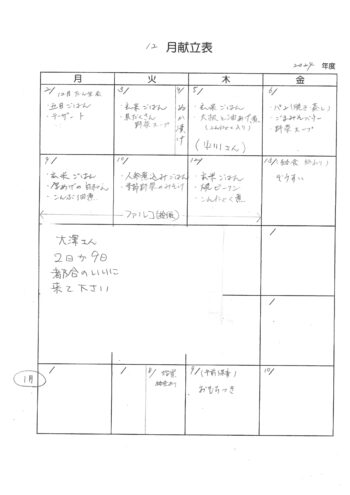 12 月献立表
2024 年度
月 火 木 金
2/ 12月たん生会
五目ごはん
・デザート
3/
・玄米ごはん
・具だくさん
野菜スープ
4/ ぬか漬け
5/
・玄米ごはん
・大根と油あげ煮
(こんにゃく入り)
(山川さん)
6/
・パン(焼き蒸し)
・ごまみそバター
・野菜スープ
9/
・玄米ごはん
・厚あげの
・こんぶ佃煮
10/
・人参煮込みごはん
・季節野菜のみそ汁
12/
・玄米ごはん
・焼ビーフン
・こんにゃく煮
13/
ぞうすい
大澤さん
2日か9日
都合のいい
来て下さい
/
/
1月
/
/
8/
始まり
9/ (午前保育)
おもちつき
10/